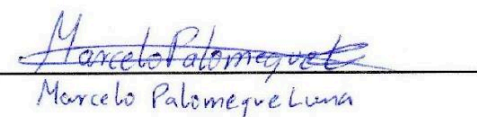 Marcelo Palomeque L
Marcelo Palomeque Luna